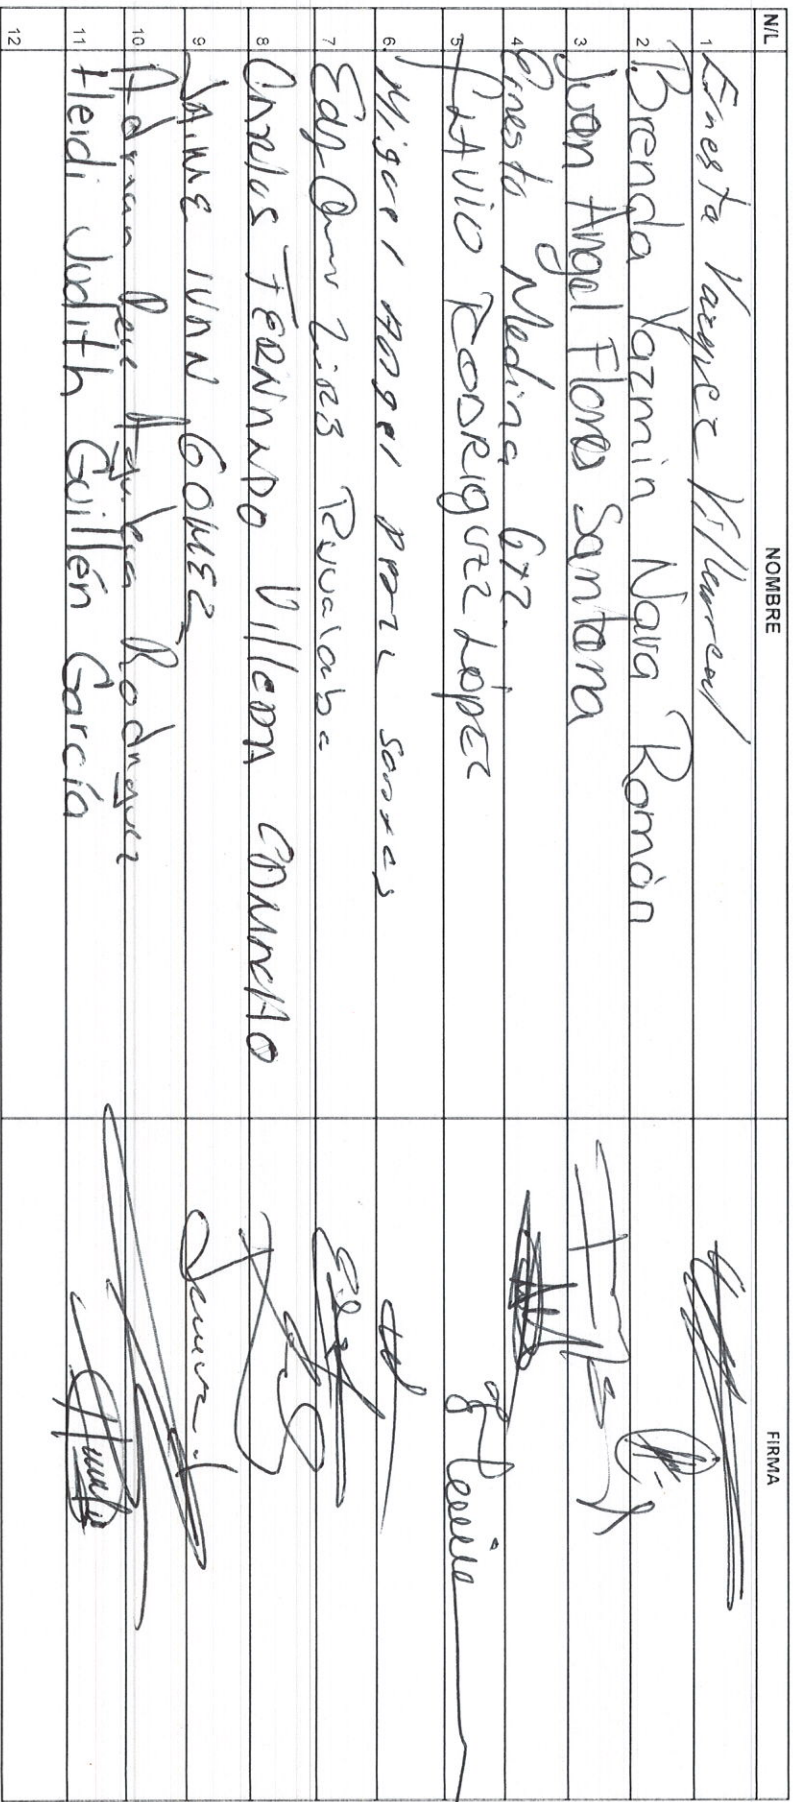 N/L NOMBRE FIRMA
1 Ernesto Vazquez Villarreal
2 Brenda Yazmin Nava Román
3 Juan Angel Flores Santana
4 Ernesto Medina Gtz.
5 FLAVIO RODRIGUEZ LÓPEZ
6 Miguel Angel
7 Edy Omar
8 CARLOS FERNANDO Villeda CAMACHO
9 JAIME IVAN GOMEZ
10 Adrian Rodriguez
11 Heidi Judith Guillén García
12